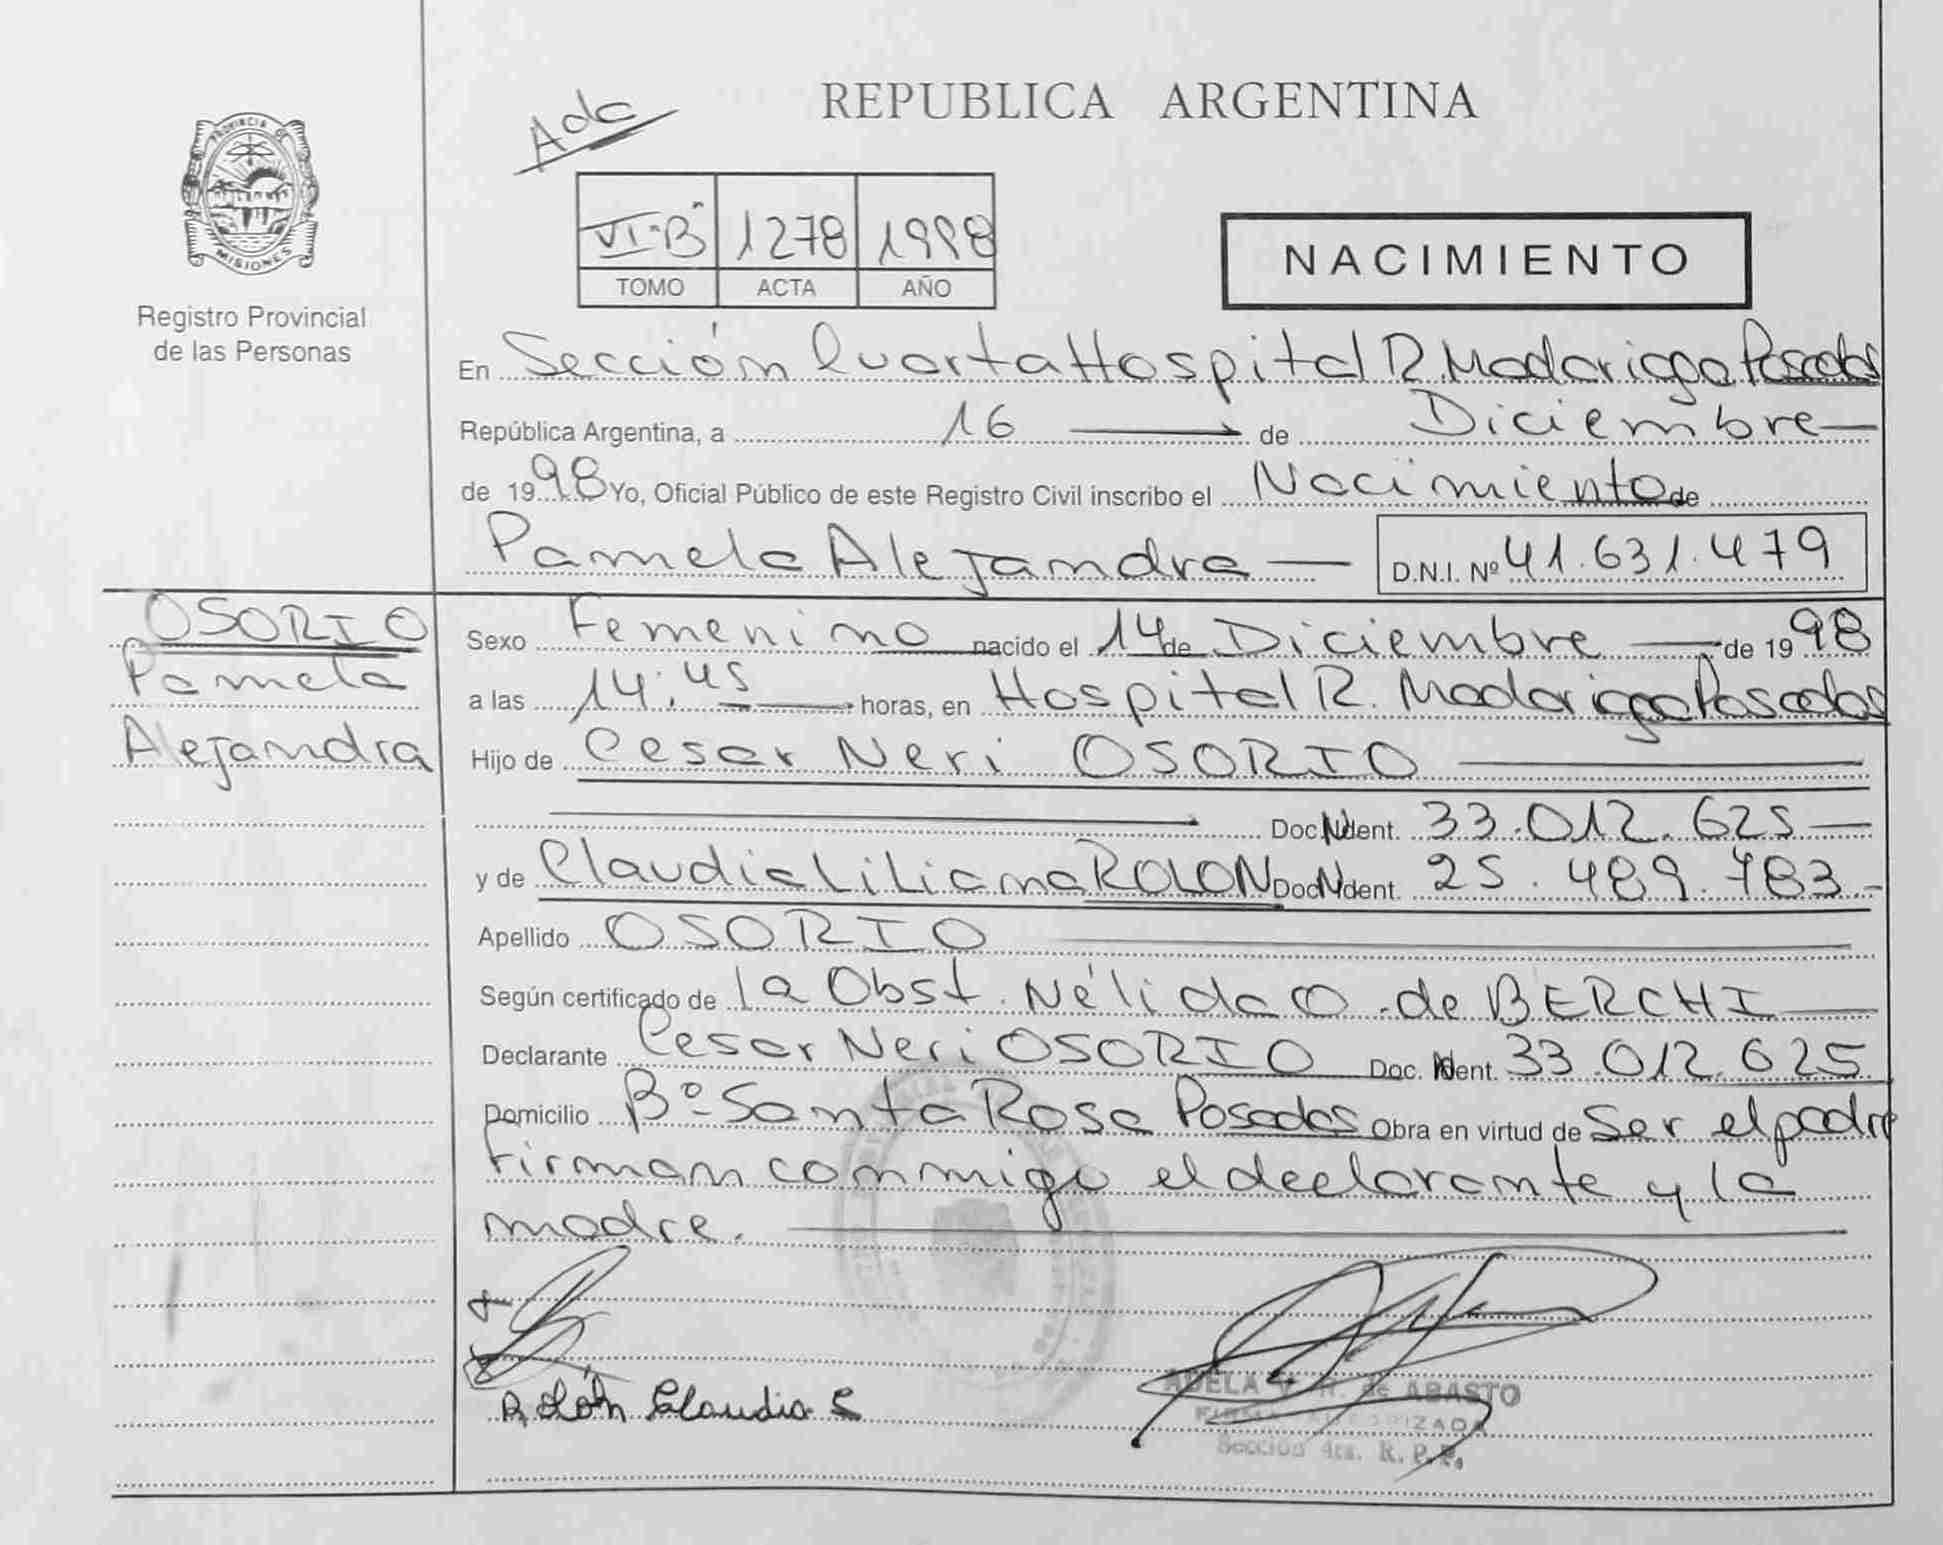 REPUBLICA ARGENTINA
Ada
PROVINCIA DE
MISIONES
Registro Provincial
de las Personas
VI-B" 1278 1998
TOMO ACTA AÑO
NACIMIENTO
En Sección Cuarta Hospital R. Madariaga Posadas
República Argentina, a 16 de Diciembre
de 1998 Yo, Oficial Público de este Registro Civil inscribo el Nacimiento de
Pamela Alejandra D.N.I. Nº 41.631.479
OSORIO
Pamela
Alejandra
Sexo Femenino nacido el 14 de Diciembre de 1998
a las 14:45 horas, en Hospital R. Madariaga Posadas
Hijo de Cesar Neri OSORIO
Doc. Ident. 33.012.625
y de Claudia Liliana ROLON Doc. Ident. 25.489.783
Apellido OSORIO
Según certificado de la Obst. Nélida O. de BERCHI
Declarante Cesar Neri OSORIO Doc. Ident. 33.012.625
Domicilio Bº Santa Rosa Posadas Obra en virtud de Ser el padre
Firman conmigo el declarante y la
madre.
Rolón Claudia L
ADELA V. R. de ABASTO
FIRMA AUTORIZADA
Sección 4ta. R. P. P.